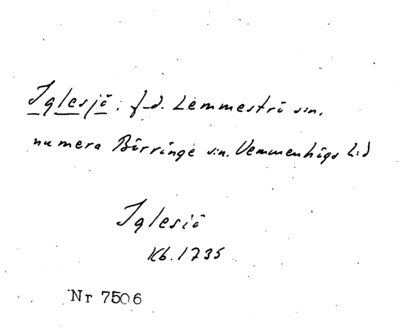 Iglesjö, f.d. Lemmeströ sn.
numera Börringe sn. Vemmenhögs hd
Iglesiö
Kb. 1735
Nr 7506